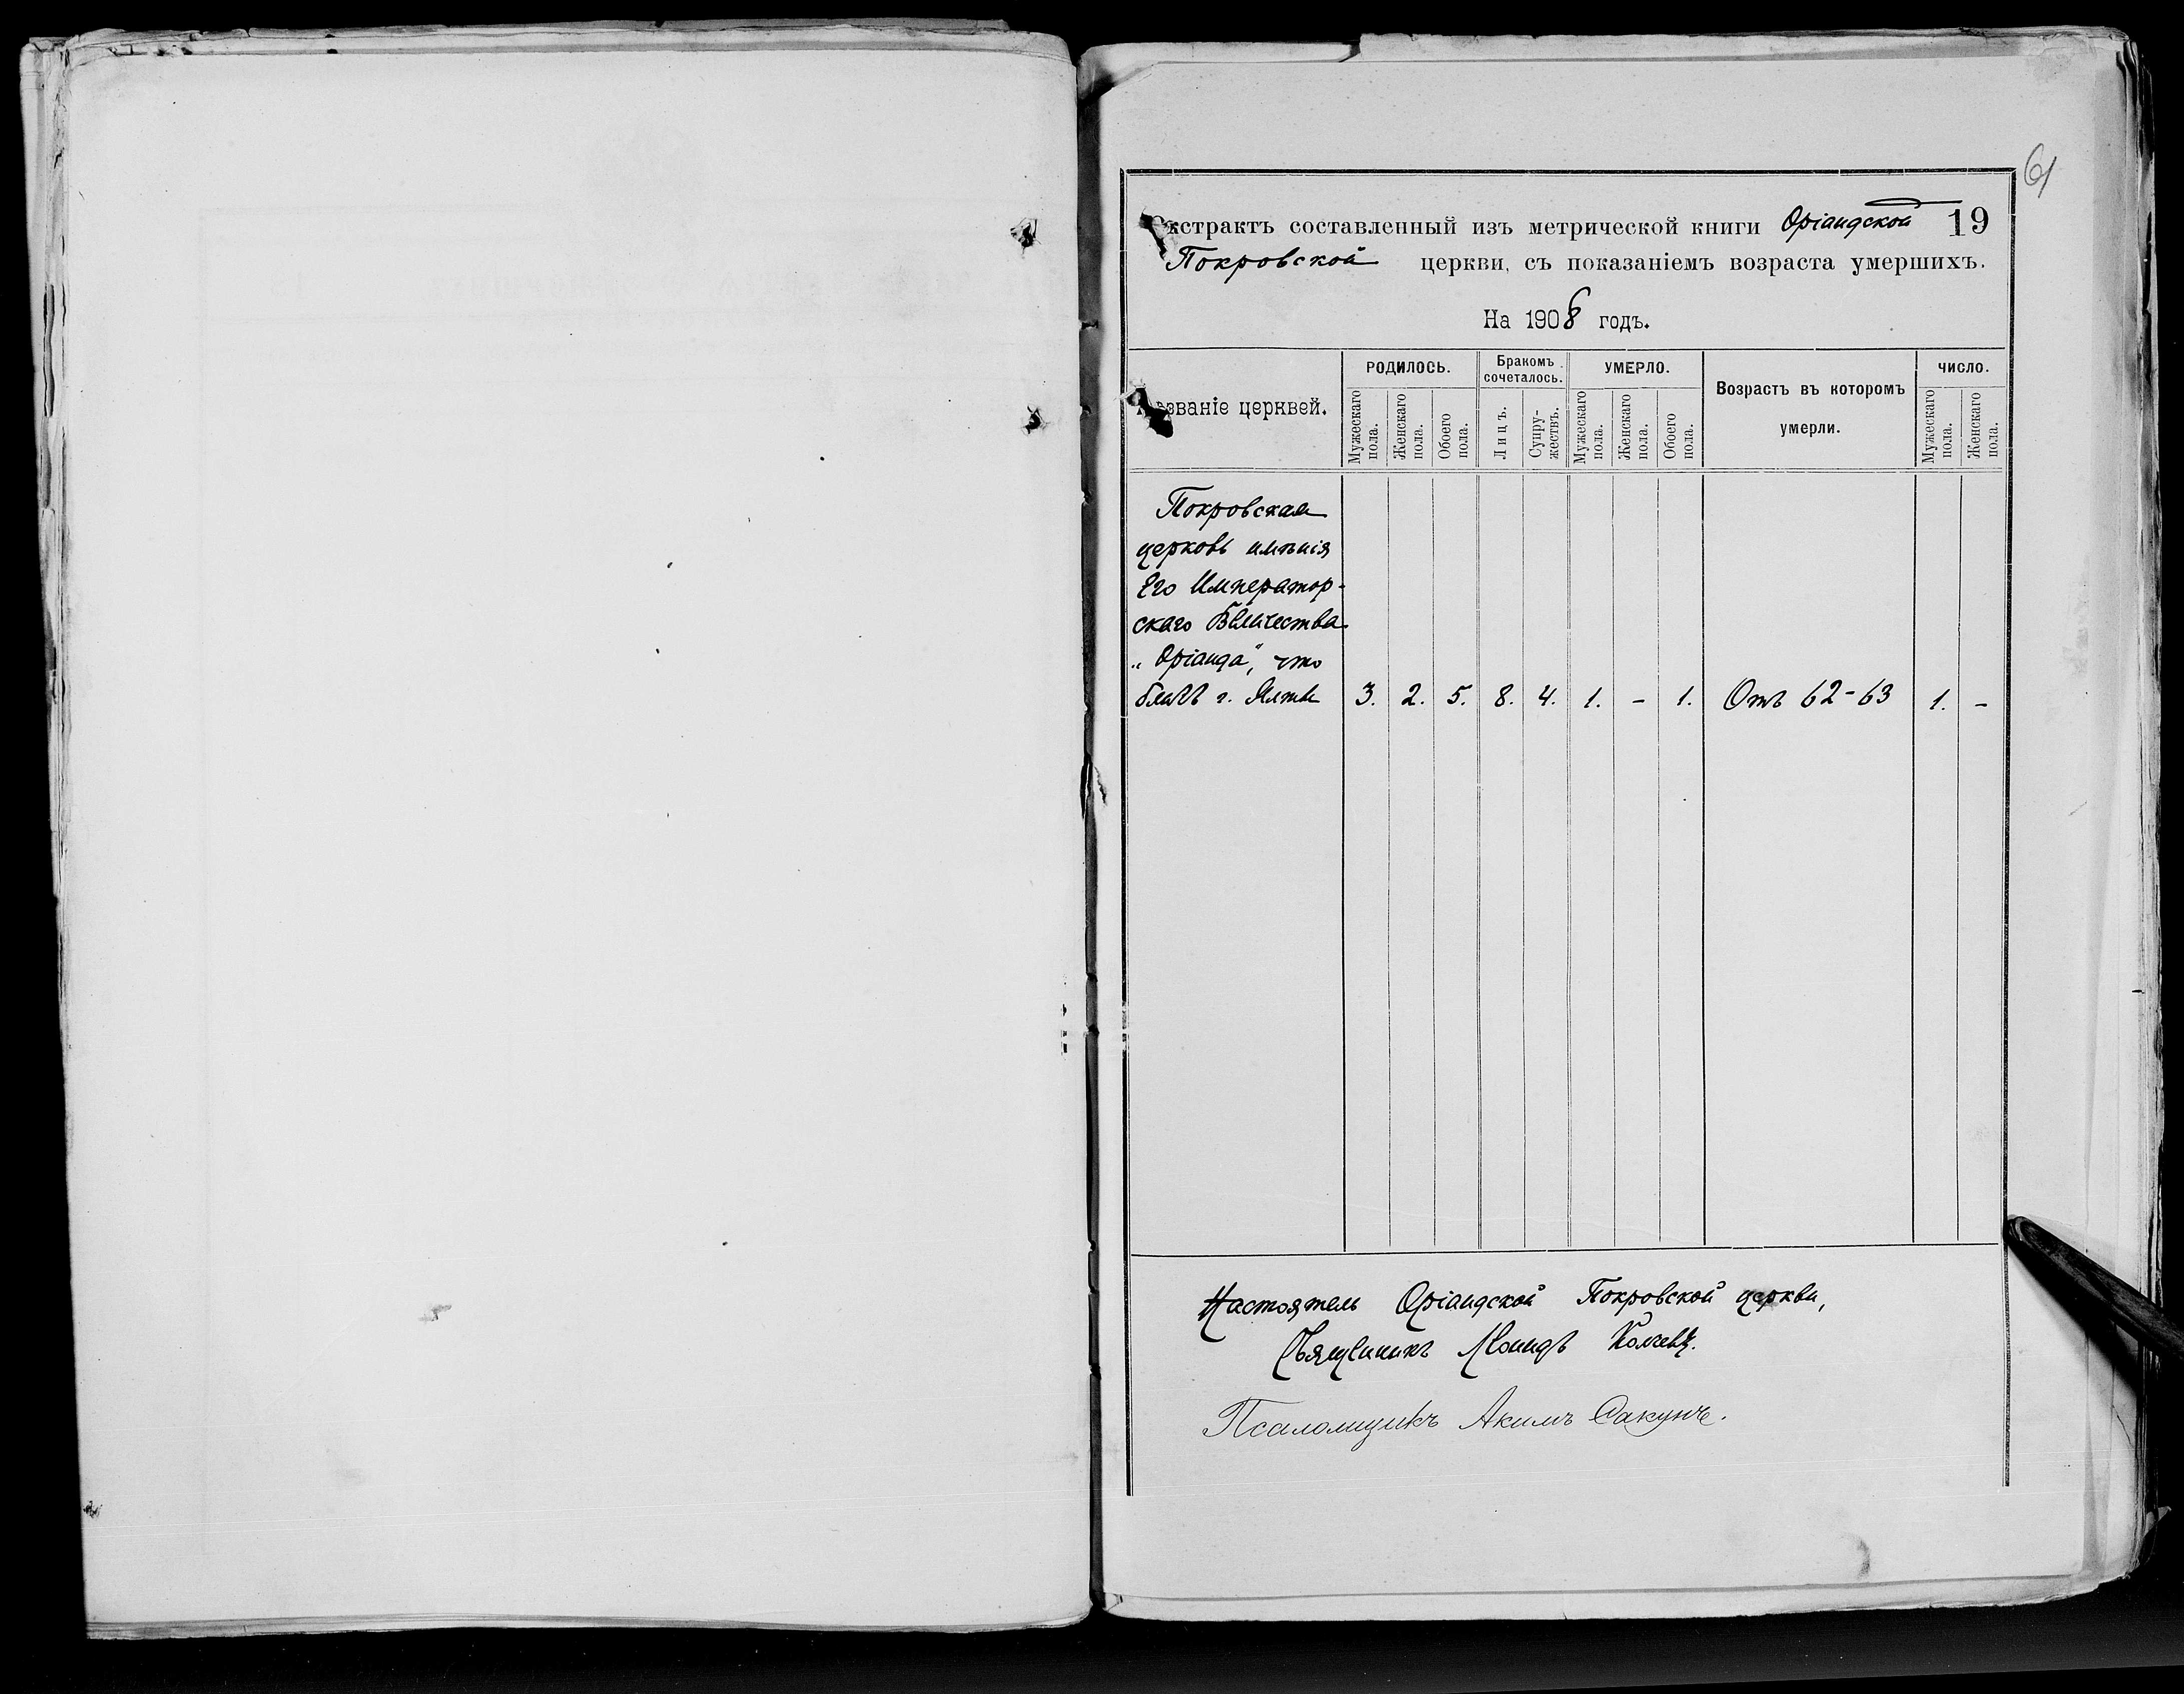 61
Экстрактъ составленный изъ метрической книги Оріандской 19
Покровской церкви, съ показаніемъ возраста умершихъ.
На 1908 годъ.
Названіе церквей.
РОДИЛОСЬ.
Мужескаго пола.
Женскаго пола.
Обоего пола.
Бракомъ сочеталось.
Лицъ.
Супружествъ.
УМЕРЛО.
Мужескаго пола.
Женскаго пола.
Обоего пола.
Возрастъ въ которомъ
умерли.
ЧИСЛО.
Мужескаго пола.
Женскаго пола.
Покровская
церковь имѣнія
Его Император-
скаго Величества
„Оріанда", что
близъ г. Ялты 3. 2. 5. 8. 4. 1. - 1. Отъ 62-63 1. -
Настоятель Оріандской Покровской церкви,
Священникъ
Псаломщикъ Акимъ Сакунъ.